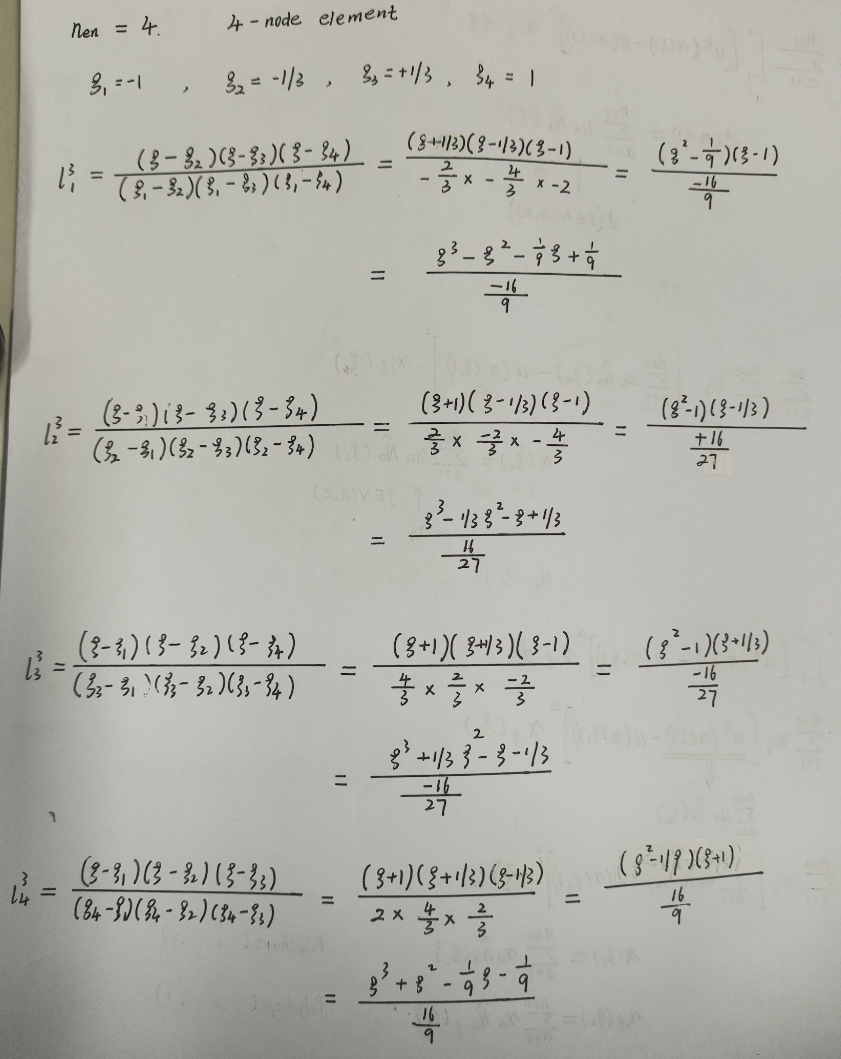 nen = 4. 4-node element
ξ₁ = -1 , ξ₂ = -1/3 , ξ₃ = +1/3 , ξ₄ = 1
l₁³ = (ξ-ξ₂)(ξ-ξ₃)(ξ-ξ₄) / (ξ₁-ξ₂)(ξ₁-ξ₃)(ξ₁-ξ₄) = (ξ+1/3)(ξ-1/3)(ξ-1) / -2/3 × -4/3 × -2 = (ξ²-1/9)(ξ-1) / (-16/9)
= ξ³ - ξ² - 1/9 ξ + 1/9 / (-16/9)
l₂³ = (ξ-ξ₁)(ξ-ξ₃)(ξ-ξ₄) / (ξ₂-ξ₁)(ξ₂-ξ₃)(ξ₂-ξ₄) = (ξ+1)(ξ-1/3)(ξ-1) / 2/3 × -2/3 × -4/3 = (ξ²-1)(ξ-1/3) / (+16/27)
= ξ³ - 1/3 ξ² - ξ + 1/3 / (16/27)
l₃³ = (ξ-ξ₁)(ξ-ξ₂)(ξ-ξ₄) / (ξ₃-ξ₁)(ξ₃-ξ₂)(ξ₃-ξ₄) = (ξ+1)(ξ+1/3)(ξ-1) / 4/3 × 2/3 × -2/3 = (ξ²-1)(ξ+1/3) / (-16/27)
= ξ³ + 1/3 ξ² - ξ - 1/3 / (-16/27)
l₄³ = (ξ-ξ₁)(ξ-ξ₂)(ξ-ξ₃) / (ξ₄-ξ₁)(ξ₄-ξ₂)(ξ₄-ξ₃) = (ξ+1)(ξ+1/3)(ξ-1/3) / 2 × 4/3 × 2/3 = (ξ²-1/9)(ξ+1) / (16/9)
= ξ³ + ξ² - 1/9 ξ - 1/9 / (16/9)